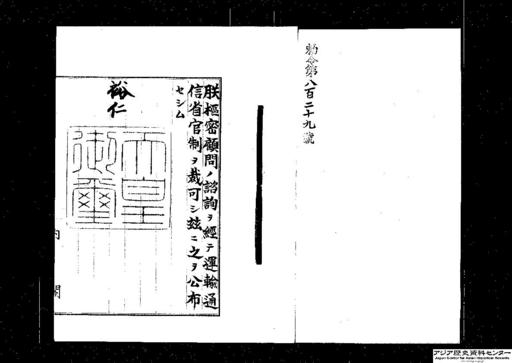 勅令第八百二十九號
朕樞密顧問ノ諮詢ヲ經テ運輸通
信省官制ヲ裁可シ玆ニ之ヲ公布
セシム
裕仁
天皇
御璽
内閣
アジア歴史資料センター
Japan Center for Asian Historical Records